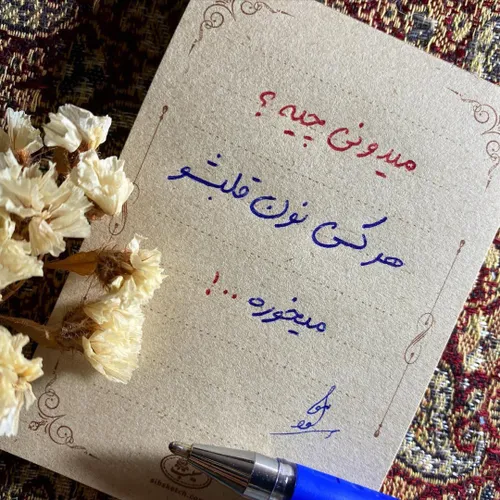 میدونی چیه ؟
هر کسی نون قلبشو
میخوره ..!